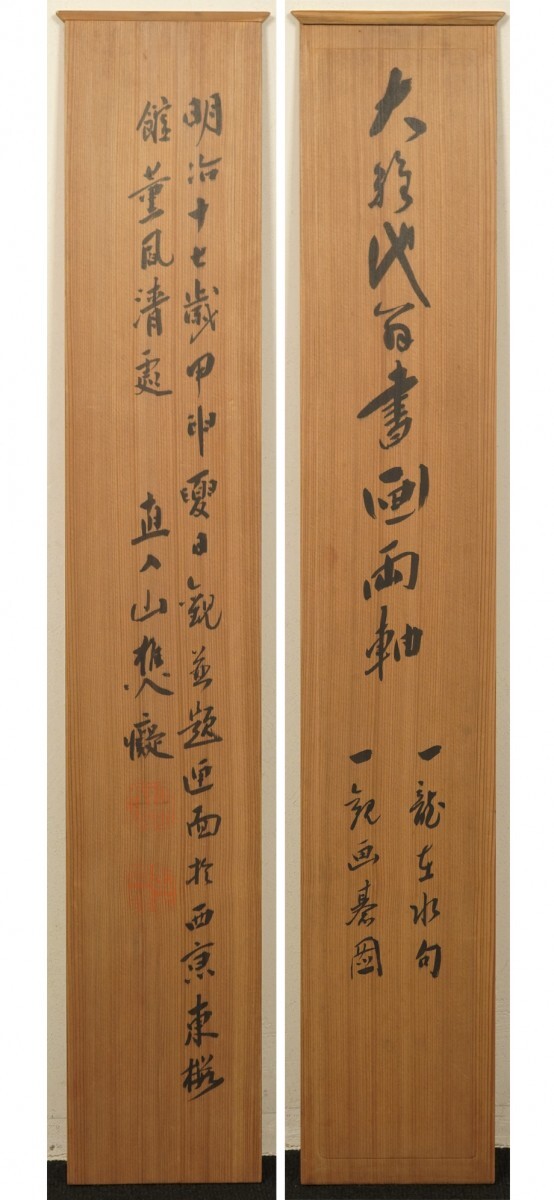 大雅池翁書画両軸
一龍在水句
一観画碁図
明治十七歳甲申夏日観並題匣面於西京東桜
館薫風清処 直入山樵癡